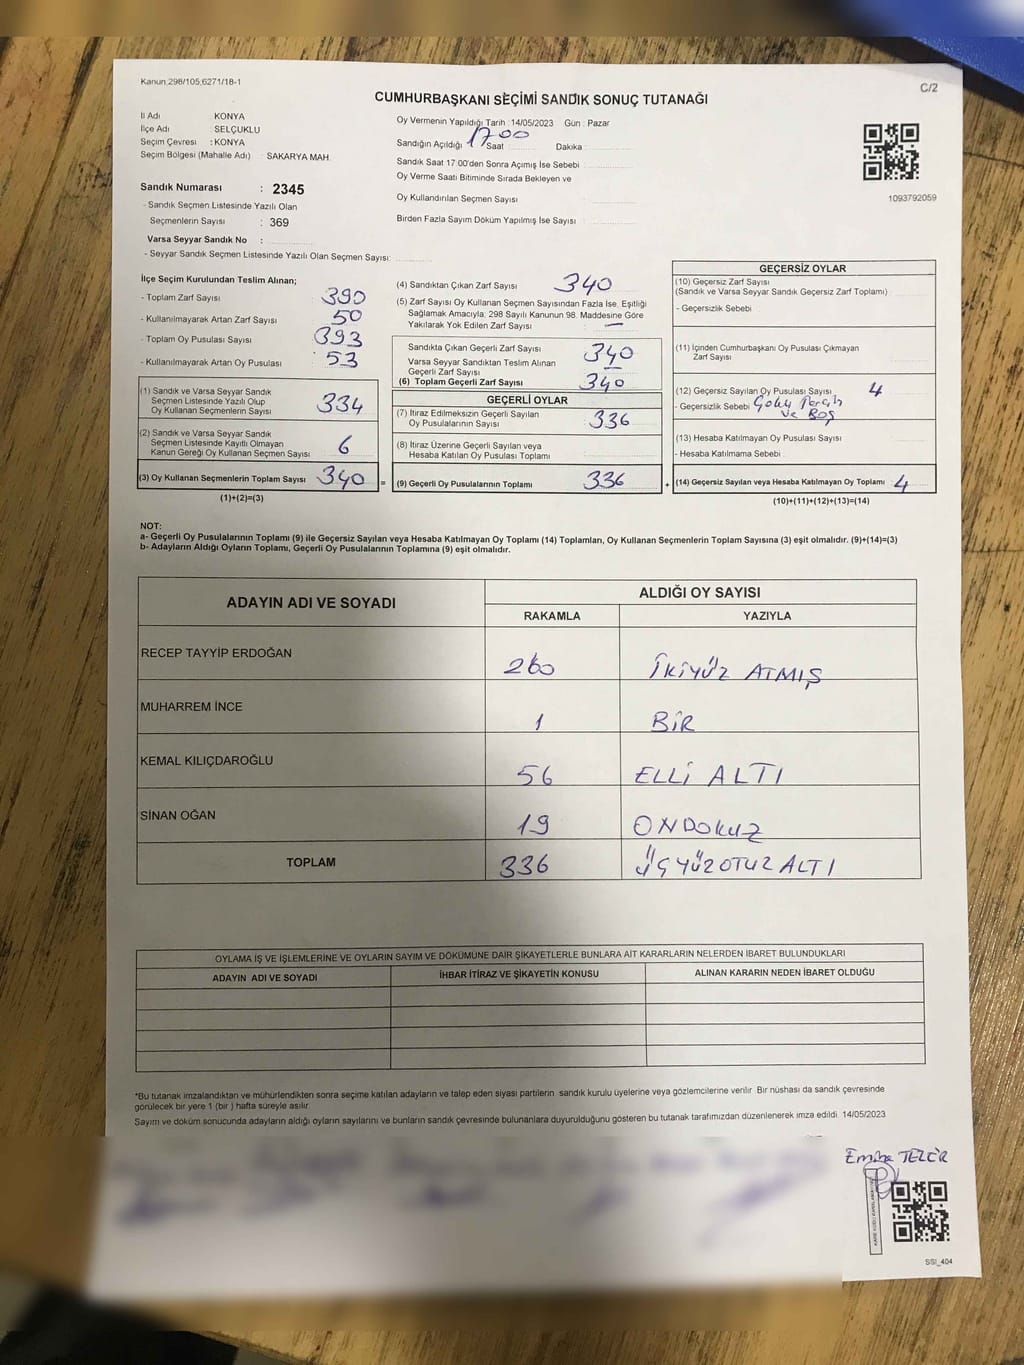 Kanun:298/105;6271/18-1
C/2
CUMHURBAŞKANI SEÇİMİ SANDIK SONUÇ TUTANAĞI
İl Adı KONYA
İlçe Adı SELÇUKLU
Seçim Çevresi : KONYA
Seçim Bölgesi (Mahalle Adı) : SAKARYA MAH.
Oy Vermenin Yapıldığı Tarih :14/05/2023 Gün : Pazar
Sandığın Açıldığı 1700 Saat Dakika :
Sandık Saat 17:00'den Sonra Açımış İse Sebebi
Oy Verme Saati Bitiminde Sırada Bekleyen ve
Oy Kullandırılan Seçmen Sayısı
Birden Fazla Sayım Döküm Yapılmış İse Sayısı :
1093792059
Sandık Numarası : 2345
- Sandık Seçmen Listesinde Yazılı Olan
Seçmenlerin Sayısı : 369
Varsa Seyyar Sandık No :
- Seyyar Sandık Seçmen Listesinde Yazılı Olan Seçmen Sayısı:
İlçe Seçim Kurulundan Teslim Alınan;
- Toplam Zarf Sayısı 390
- Kullanılmayarak Artan Zarf Sayısı : 50
- Toplam Oy Pusulası Sayısı : 393
- Kullanılmayarak Artan Oy Pusulası : 53
(1) Sandık ve Varsa Seyyar Sandık
Seçmen Listesinde Yazılı Olup
Oy Kullanan Seçmenlerin Sayısı 334
(2) Sandık ve Varsa Seyyar Sandık
Seçmen Listesinde Kayıtlı Olmayan
Kanun Gereği Oy Kullanan Seçmen Sayısı 6
(3) Oy Kullanan Seçmenlerin Toplam Sayısı 340
(1)+(2)=(3)
=
(4) Sandıktan Çıkan Zarf Sayısı 340
(5) Zarf Sayısı Oy Kullanan Seçmen Sayısından Fazla İse, Eşitliği
Sağlamak Amacıyla; 298 Sayılı Kanunun 98. Maddesine Göre
Yakılarak Yok Edilen Zarf Sayısı : —
Sandıkta Çıkan Geçerli Zarf Sayısı 340
Varsa Seyyar Sandıktan Teslim Alınan
Geçerli Zarf Sayısı —
(6) Toplam Geçerli Zarf Sayısı 340
GEÇERLİ OYLAR
(7) İtiraz Edilmeksizin Geçerli Sayılan
Oy Pusulalarının Sayısı 336
(8) İtiraz Üzerine Geçerli Sayılan veya
Hesaba Katılan Oy Pusulası Toplamı
(9) Geçerli Oy Pusulalarının Toplamı 336
+
GEÇERSİZ OYLAR
(10) Geçersiz Zarf Sayısı
(Sandık ve Varsa Seyyar Sandık Geçersiz Zarf Toplamı)
- Geçersizlik Sebebi
(11) İçinden Cumhurbaşkanı Oy Pusulası Çıkmayan
Zarf Sayısı
(12) Geçersiz Sayılan Oy Pusulası Sayısı 4
- Geçersizlik Sebebi
ve Boş
(13) Hesaba Katılmayan Oy Pusulası Sayısı
- Hesaba Katılmama Sebebi
(14) Geçersiz Sayılan veya Hesaba Katılmayan Oy Toplamı 4
(10)+(11)+(12)+(13)=(14)
NOT:
a- Geçerli Oy Pusulalarının Toplamı (9) ile Geçersiz Sayılan veya Hesaba Katılmayan Oy Toplamı (14) Toplamları, Oy Kullanan Seçmenlerin Toplam Sayısına (3) eşit olmalıdır. (9)+(14)=(3)
b- Adayların Aldığı Oyların Toplamı, Geçerli Oy Pusulalarının Toplamına (9) eşit olmalıdır.
ADAYIN ADI VE SOYADI ALDIĞI OY SAYISI
RAKAMLA YAZIYLA
RECEP TAYYİP ERDOĞAN 260 İKİYÜZ ATMIŞ
MUHARREM İNCE 1 BİR
KEMAL KILIÇDAROĞLU 56 ELLİ ALTI
SİNAN OĞAN 19 ONDOKUZ
TOPLAM 336 ÜÇYÜZOTUZ ALTI
OYLAMA İŞ VE İŞLEMLERİNE VE OYLARIN SAYIM VE DÖKÜMÜNE DAİR ŞİKAYETLERLE BUNLARA AİT KARARLARIN NELERDEN İBARET BULUNDUKLARI
ADAYIN ADI VE SOYADI İHBAR İTİRAZ VE ŞİKAYETİN KONUSU ALINAN KARARIN NEDEN İBARET OLDUĞU
*Bu tutanak imzalandıktan ve mühürlendikten sonra seçime katılan adayların ve talep eden siyasi partilerin sandık kurulu üyelerine veya gözlemcilerine verilir. Bir nüshası da sandık çevresinde
görülecek bir yere 1 (bir) hafta süreyle asılır.
Sayım ve döküm sonucunda adayların aldığı oyların sayılarını ve bunların sandık çevresinde bulunanlara duyurulduğunu gösteren bu tutanak tarafımızdan düzenlenerek imza edildi. 14/05/2023
Emine TEZER
SSI_404